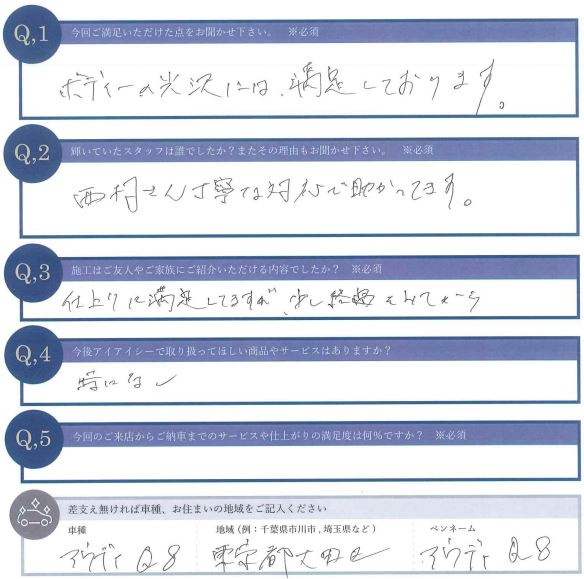 Q,1 今回ご満足いただけた点をお聞かせ下さい。 ※必須
ボディーの光沢には、満足しております。
Q,2 輝いていたスタッフは誰でしたか？またその理由もお聞かせ下さい。 ※必須
西村さん丁寧な対応で助かってます。
Q,3 施工はご友人やご家族にご紹介いただける内容でしたか？ ※必須
仕上りに満足してますが、少し経過をみてから
Q,4 今後アイアイシーで取り扱ってほしい商品やサービスはありますか？
特になし
Q,5 今回のご来店からご納車までのサービスや仕上がりの満足度は何%ですか？ ※必須
差支え無ければ車種、お住まいの地域をご記入ください
車種 地域 (例：千葉県市川市, 埼玉県など) ペンネーム
アウディ Q8 東京都大田区 アウディ Q8